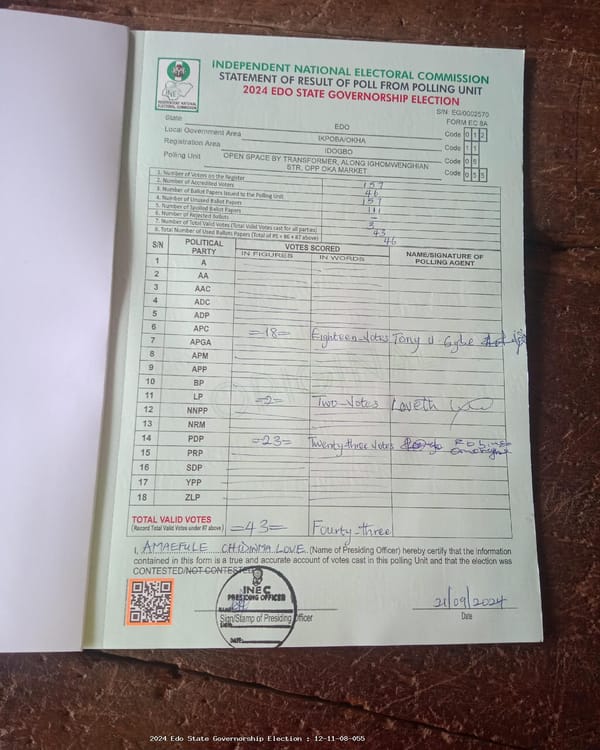 INDEPENDENT NATIONAL ELECTORAL COMMISSION
STATEMENT OF RESULT OF POLL FROM POLLING UNIT
2024 EDO STATE GOVERNORSHIP ELECTION
S/N: EG/0002570
FORM EC 8A
State EDO Code 0 1 2
Local Government Area IKPOBA/OKHA Code 1 1
Registration Area IDOGBO Code 0 8
Polling Unit OPEN SPACE BY TRANSFORMER, ALONG IGHOMWENGHIAN STR, OPP OKA MARKET Code 0 5 5
1. Number of Voters on the Register 157
2. Number of Accredited Voters 46
3. Number of Ballot Papers Issued to the Polling Unit 157
4. Number of Unused Ballot Papers 111
5. Number of Spoiled Ballot Papers –
6. Number of Rejected Ballots 3
7. Number of Total Valid Votes (Total Valid Votes cast for all parties) 43
8. Total Number of Used Ballots Papers (Total of #5 + #6 + #7 above) 46
S/N POLITICAL PARTY VOTES SCORED NAME/SIGNATURE OF POLLING AGENT
IN FIGURES IN WORDS
1 A
2 AA
3 AAC
4 ADC
5 ADP
6 APC =18= Eighteen-Votes Tony U.
7 APGA
8 APM
9 APP
10 BP
11 LP =2= Two-Votes Loveth
12 NNPP
13 NRM
14 PDP =23= Twenty-three Votes
15 PRP
16 SDP
17 YPP
18 ZLP
TOTAL VALID VOTES =43= Fourty-three
(Record Total Valid Votes under #7 above)
I, AMAEFULE CHIDINMA LOVE (Name of Presiding Officer) hereby certify that the information
contained in this form is a true and accurate account of votes cast in this polling Unit and that the election was
CONTESTED/NOT CONTESTED
INEC
PRESIDING OFFICER
Sign/Stamp of Presiding Officer
DATE:
21/09/2024
Date
2024 Edo State Governorship Election : 12-11-08-055